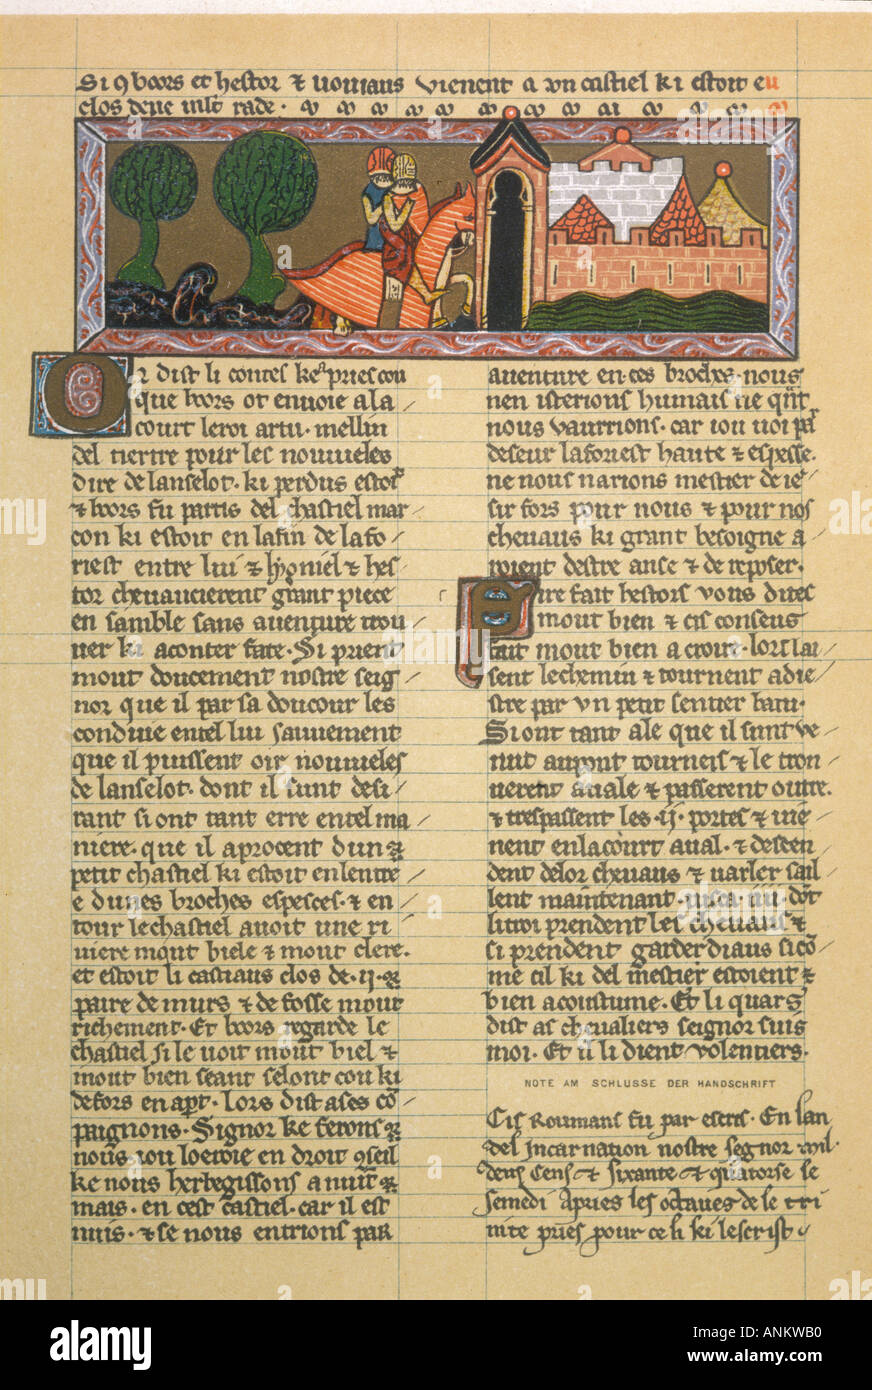 Si 9 boors et hestor & uouiaus vienent a vn castiel ki estoit en
clos
Or dist li contes ke apries cou
que boors ot enuoie a la
court le roi artu. mellin
del tiertre pour les nouuieles
dire de lanselot. ki perdus estoit
& boors fu partis del chastiel mar
con ki estoit en la fin de la fo
riest entre lui & lyoniel & hes
tor cheuaucierent grant piece
en samble sans auenture trou
uer ki a conter face. Si prient
mout doucement nostre seig
nor que il par sa doucour les
conduie en tel liu sauuement
que il puissent oir nouuieles
de lanselot. dont il sunt desi
rant si ont tant erre en tel ma
niere. que il aprocent dun
petit chastiel ki estoit en lentre
e dunes broches espesses. & en
tour le chastiel auoit une ri
uiere mout biele & mout clere.
et estoit li castiaus clos de .ij.
paire de murs & de fosse mout
richement. Et boors regarde le
chastiel si le uoit mout biel &
mout bien seant selonc cou ki
defors en apert. Lors dist a ses co
paignons. Signor ke ferons
nous iou loeroie en droit 9seil
ke nous herbegissons a nuit
mais. en cest castiel. car il est
nuis. & se nous entrions par
auenture en ces broches. nous
nen isterions humais
nous vaurrions. car iou uoi par
deseur la foriest haute & espesse.
ne nous narions mestier de ie
sir fors pour nous & pour nos
cheuaus ki grant besoigne a
roient destre aise & de reposer.
Sire fait hestors vous dites
mout bien & cis conseus
fait mout bien a croire. lors lai
sent le chemin & tournent a die
stre par vn petit sentier batu.
Si ont tant ale que il sunt ve
nut au pont tourneis & le trou
uerent auale & passerent outre.
& trespassent les .ij. portes & uie
nent en la court aual. & descen
dent de lor cheuaus & varlet sail
lent maintenant
li troi prendent les cheuaus &
si prendent garde diaus si co
me cil ki del mestier estoient &
bien acoustume. Et li quars
dist as cheualiers seignor suis
moi. Et il li dient volentiers.
NOTE AM SCHLUSSE DER HANDSCHRIFT
Cis Roumans fu par escris. En lan
del Incarnation nostre segnor mil.
deus Cens & sixante & quatorse le
semedi Apries les octaues de le tri
nite pries pour celi ki lescrist
alamy
Image ID: ANKWB0
www.alamy.com